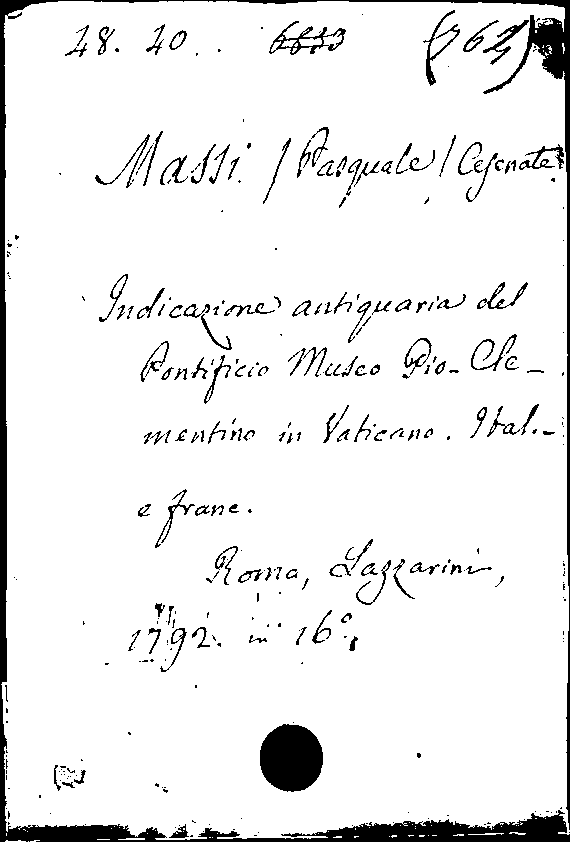 28. 20. . 6633 (762)
Massi / Pasquale / Cesenate.
Indicazione antiquaria del
Pontificio Museo Pio-Cle-
mentino in Vaticano. Ital.-
e franc.
Roma, Lazzarini,
1792. in 16°.